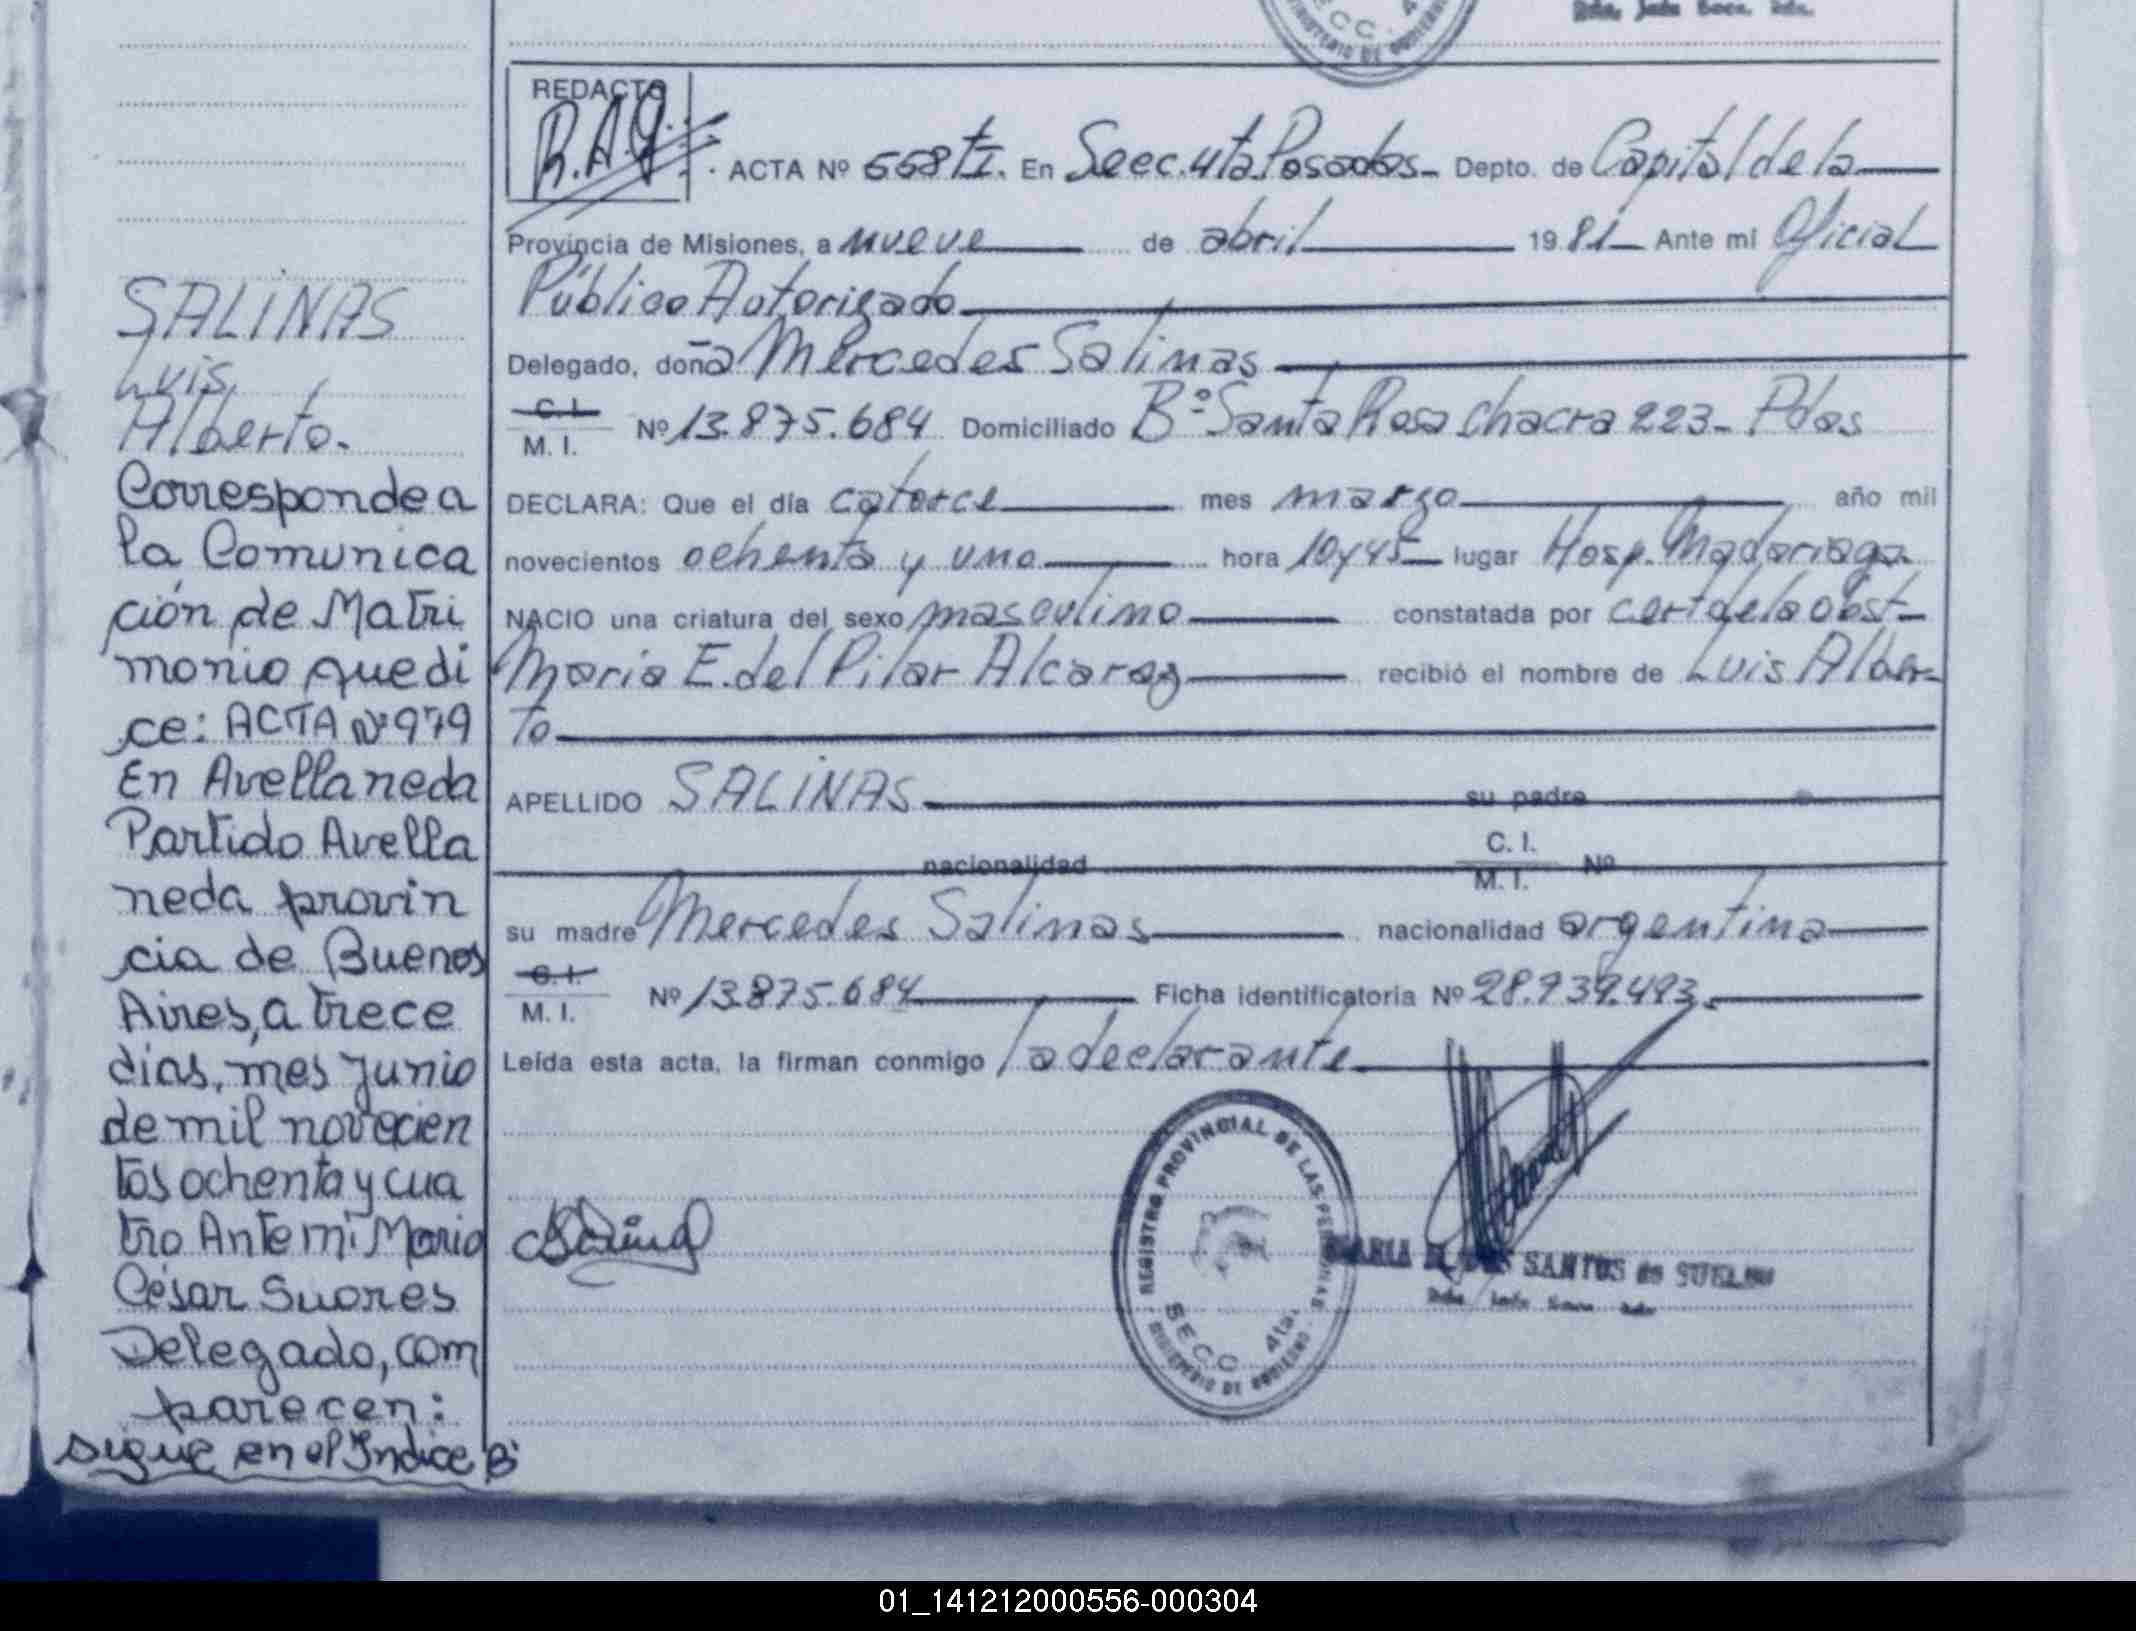 SALINAS
Luis
Alberto.-
Corresponde a
la Comunica
ción de Matri
monio que di
ce: ACTA Nº 979
En Avellaneda
Partido Avella
neda provin
cia de Buenos
Aires, a trece
dias, mes Junio
de mil novecien
tos ochenta y cua
tro Ante mi Mario
César Suares
Delegado, com
parecen:
sigue en el Indice B
REDACTO
R.A.G.
ACTA Nº 558 tI. En Secc. 4ta Posadas - Depto. de Capital de la
Provincia de Misiones, a nueve de abril 19 81 Ante mi Oficial
Público Autorizado
Delegado, doña Mercedes Salinas
C.I.
M. I. Nº 13.875.684 Domiciliado Bº Santa Rosa Chacra 223 - Pdas
DECLARA: Que el día catorce mes marzo año mil
novecientos ochenta y uno hora 10 y 45 lugar Hosp. Madariaga
NACIO una criatura del sexo masculino constatada por cert de la obst-
Maria E. del Pilar Alcaraz recibió el nombre de Luis Alber-
to
APELLIDO SALINAS su padre
nacionalidad C. I.
M. I. Nº
su madre Mercedes Salinas nacionalidad argentina
C. I.
M. I. Nº 13.875.684 Ficha identificatoria Nº 28.739.493.
Leída esta acta, la firman conmigo la declarante
REGISTRO PROVINCIAL DE LAS PERSONAS
SECC. 4ta.
MINISTERIO DE GOBIERNO
SANTOS de
01_141212000556-000304